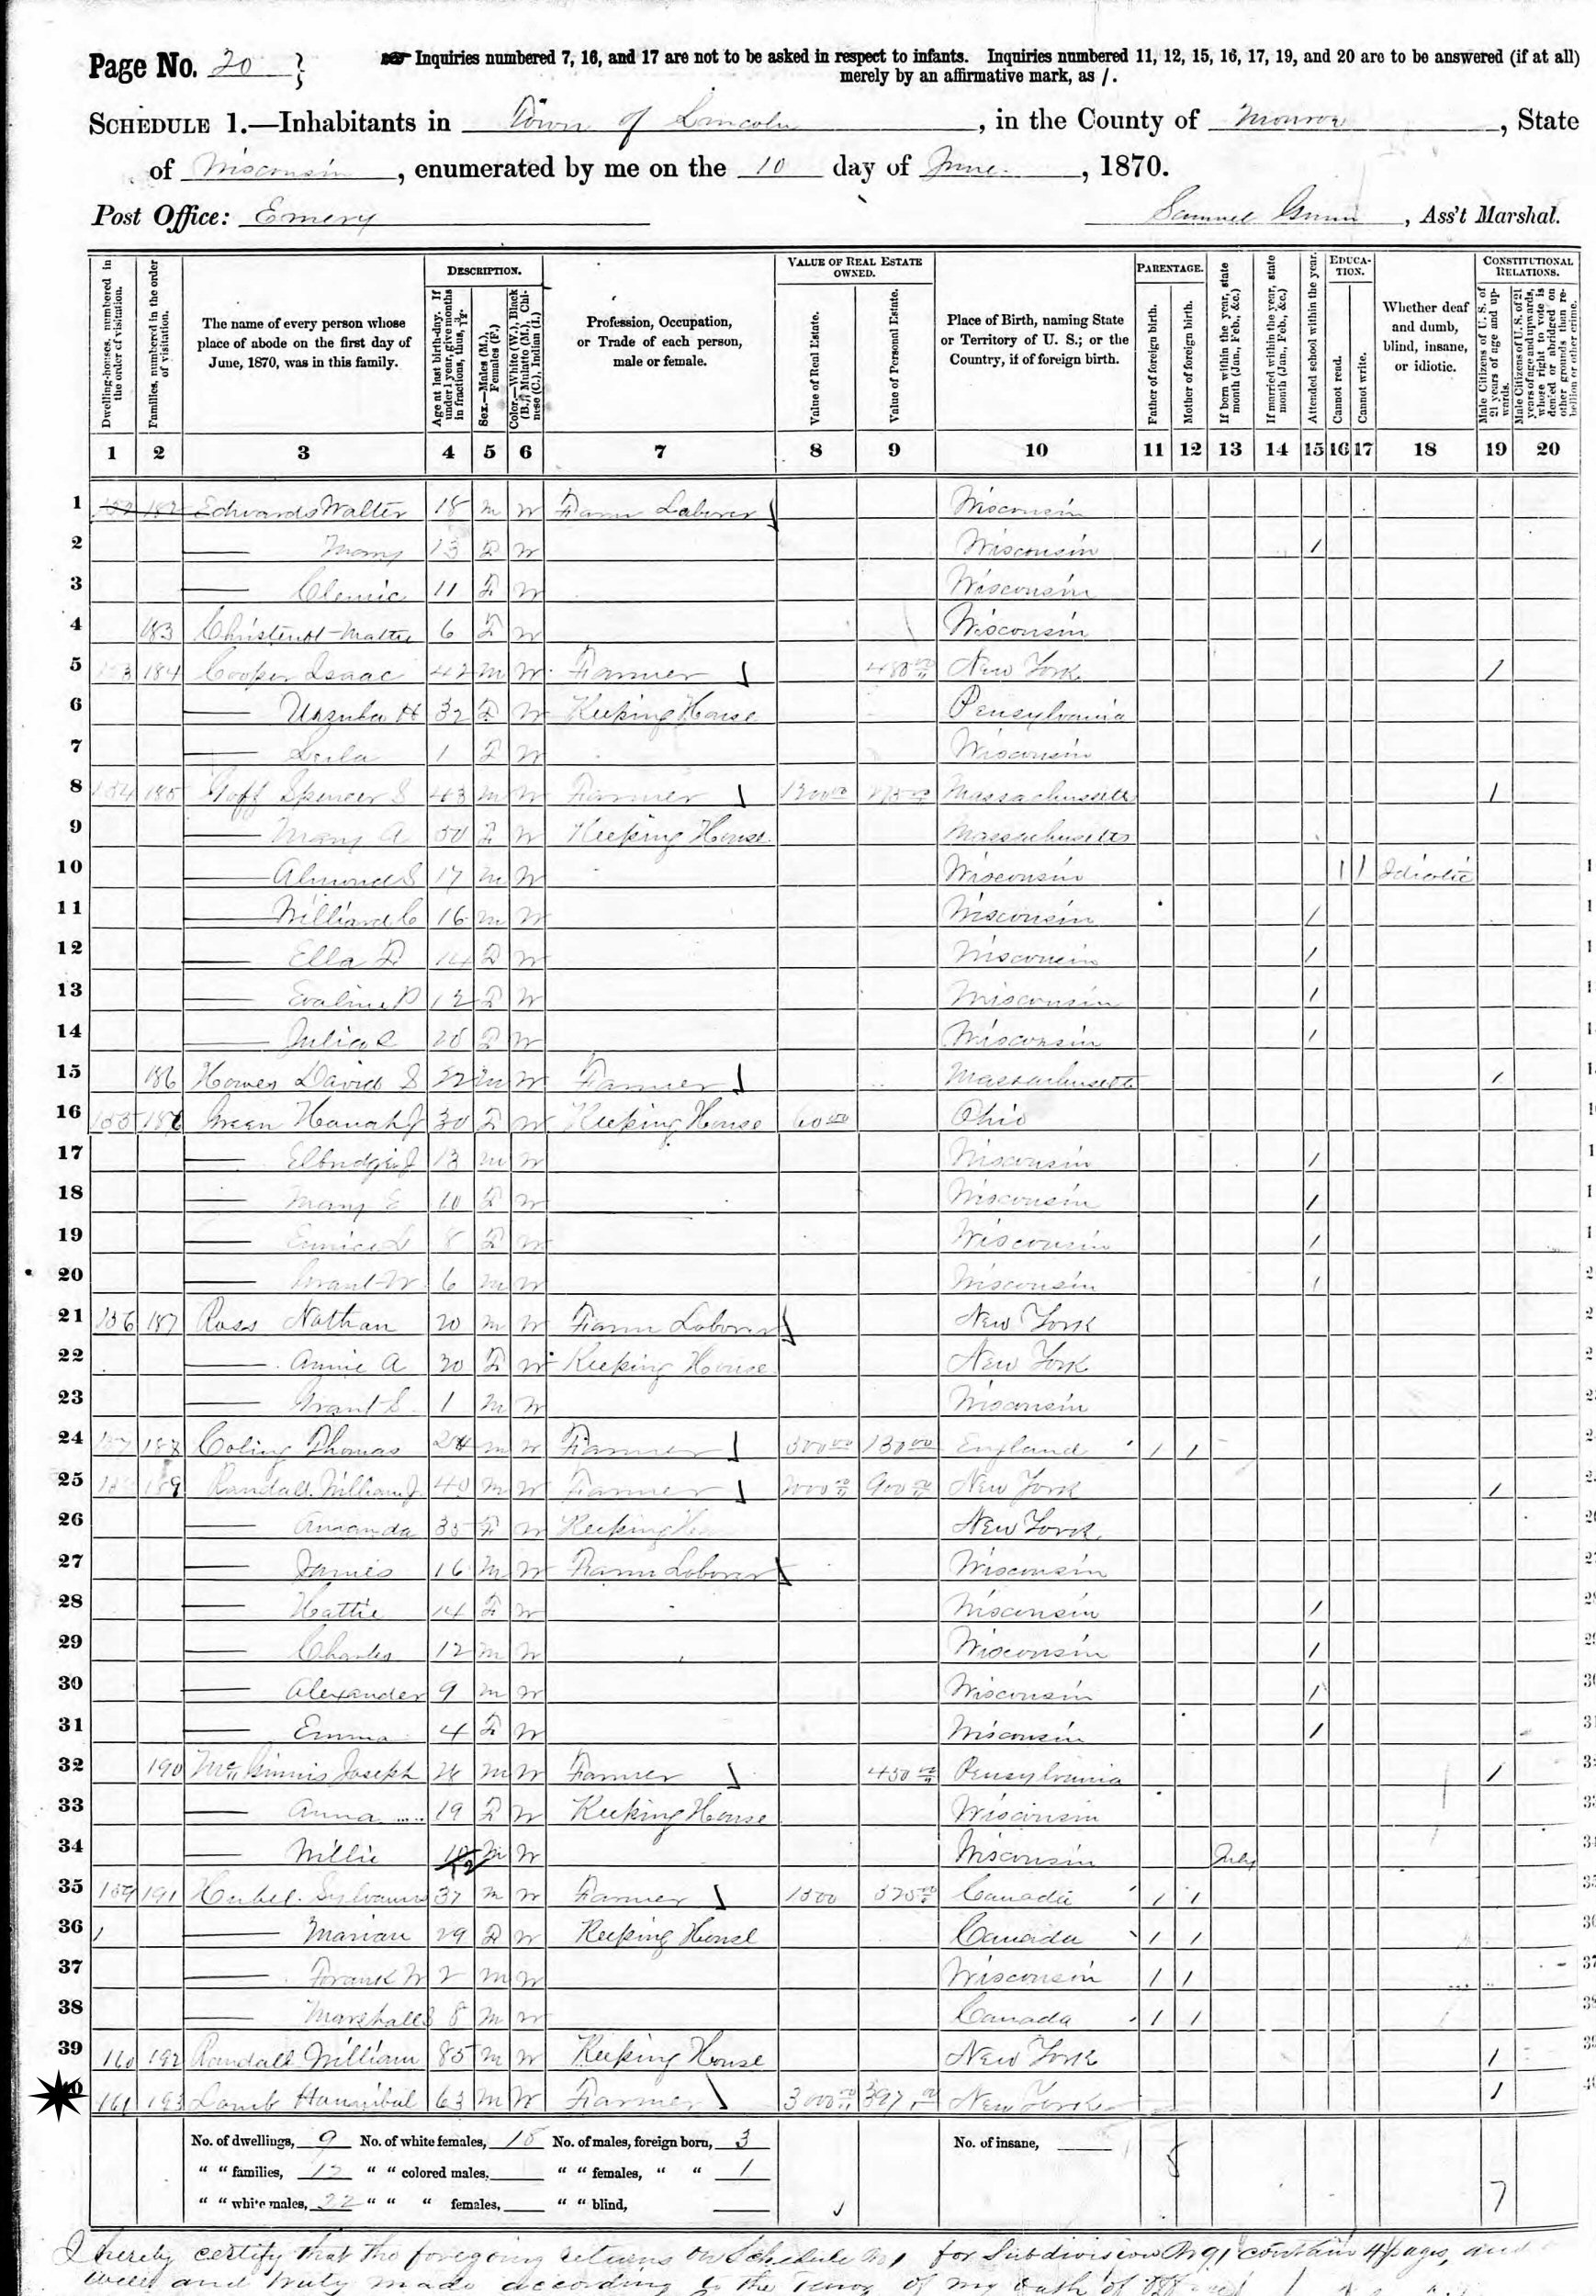 Page No. 20
Inquiries numbered 7, 16, and 17 are not to be asked in respect to infants. Inquiries numbered 11, 12, 15, 16, 17, 19, and 20 are to be answered (if at all)
merely by an affirmative mark, as /.
SCHEDULE 1.—Inhabitants in Town of Lincoln, in the County of Monroe, State
of Wisconsin, enumerated by me on the 10 day of June, 1870.
Post Office: Emery Samuel , Ass't Marshal.
Dwelling-houses, numbered in the order of visitation.
Families, numbered in the order of visitation.
The name of every person whose place of abode on the first day of June, 1870, was in this family.
DESCRIPTION.
Age at last birth-day. If under 1 year, give months in fractions, thus, 3/12
Sex.—Males (M.), Females (F.)
Color.—White (W.), Black (B.), Mulatto (M.), Chinese (C.), Indian (I.)
Profession, Occupation, or Trade of each person, male or female.
VALUE OF REAL ESTATE OWNED.
Value of Real Estate.
Value of Personal Estate.
Place of Birth, naming State or Territory of U. S.; or the Country, if of foreign birth.
PARENTAGE.
Father of foreign birth.
Mother of foreign birth.
If born within the year, state month (Jan., Feb., &c.)
If married within the year, state month (Jan., Feb., &c.)
Attended school within the year.
EDUCATION.
Cannot read.
Cannot write.
Whether deaf and dumb, blind, insane, or idiotic.
CONSTITUTIONAL RELATIONS.
Male Citizens of U. S. of 21 years of age and upwards.
Male Citizens of U. S. of 21 years of age and upwards, where right to vote is denied or abridged on other grounds than rebellion or other crime.
1 2 3 4 5 6 7 8 9 10 11 12 13 14 15 16 17 18 19 20
1 152 182 Edwards Walter 18 m W Farm Laborer Wisconsin
2 — Mary 13 F W Wisconsin /
3 — 11 F W Wisconsin
4 183 6 F W Wisconsin
5 153 184 Cooper Isaac 42 m W Farmer 480 00 New York /
6 — H 32 F W Keeping House Pensylvania
7 — 1 F W Wisconsin
8 154 185 Goff Spencer S 43 m W Farmer Massachusetts /
9 — Mary A 50 F W Keeping House Massachusetts
10 — Almond S 17 m W Wisconsin / / Idiotic
11 — Williard C 16 m W Wisconsin /
12 — Ella F 14 F W Wisconsin /
13 — Evaline P 12 F W Wisconsin /
14 — Julia F W Wisconsin /
15 186 Howes David S 22 m W Farmer Massachusetts /
16 155 186 Green Hanah J 30 F W Keeping House 60 00 Ohio
17 — Elbridge J 13 m W Wisconsin /
18 — Mary E 10 F W Wisconsin /
19 — Eunice 8 F W Wisconsin /
20 — Grant W 6 m W Wisconsin /
21 156 187 Ross Nathan 20 m W Farm Laborer New York
22 — Annie A 20 F W Keeping House New York
23 — Grant 1 m W Wisconsin
24 157 188 Coling Thomas 24 m W Farmer 130 00 England / /
25 158 189 Randall William J 40 m W Farmer 2000 00 900 00 New York /
26 — Amanda 35 F W Keeping House New York
27 — James 16 m W Farm Laborer Wisconsin
28 — Hattie 14 F W Wisconsin /
29 — Charles 12 m W Wisconsin /
30 — Alexander 9 m W Wisconsin /
31 — Emma 4 F W Wisconsin /
32 190 McGinnis Joseph m W Farmer 450 00 Pensylvania /
33 — Anna 19 F W Keeping House Wisconsin
34 — Willie m W Wisconsin July
35 159 191 37 m W Farmer 1500 Canada / /
36 — Marian 29 F W Keeping House Canada / /
37 — Frank W 2 m W Wisconsin / /
38 — Marshall 8 m W Canada / /
39 160 192 Randall William 85 m W Keeping House New York /
40 161 193 Lamb Hannibal 63 m W Farmer 3000 00 397 00 New York /
No. of dwellings, 9 No. of white females, 18 No. of males, foreign born, 3 No. of insane,
" " families, 12 " " colored males, " " females, " " 1
" " white males, 22 " " " females, " " blind,
5
7
I hereby certify that the foregoing returns on Schedule No 1 for Subdivision No 91 contain pages, and
well and truly made according to the Tenor of my oath of office